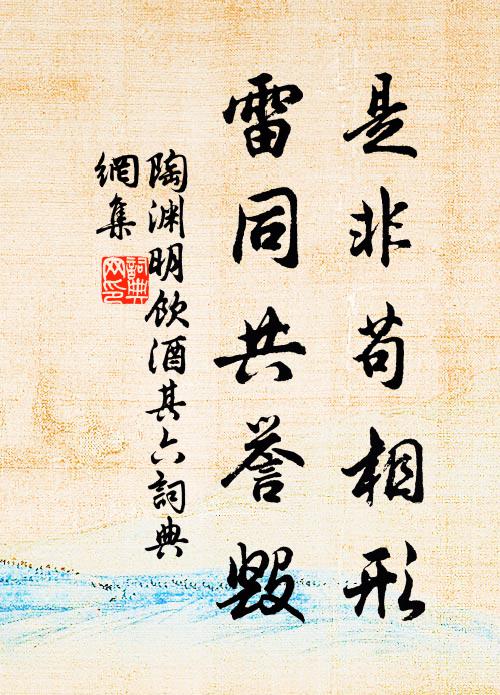 是非苟相形
雷同共誉毁
陶渊明飲酒其六詞典
網集
詞典
网印